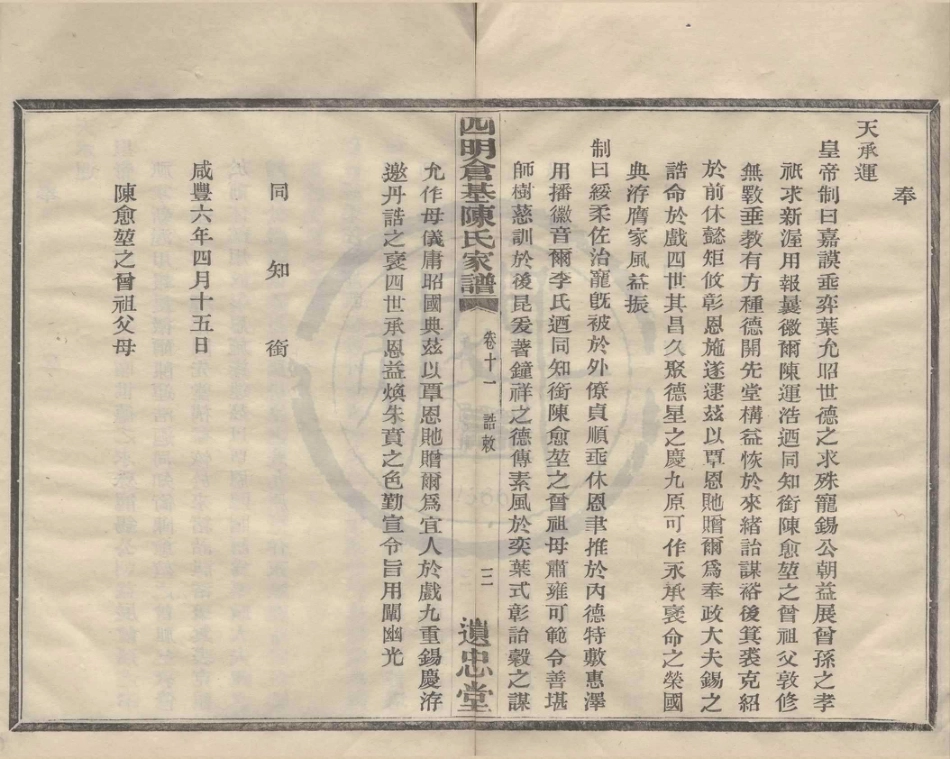 奉
天承運
皇帝制曰嘉謨垂弈葉允昭世德之求殊寵錫公朝益展曾孫之孝
祇求新渥用報曩徽爾陳運浩迺同知銜陳愈堃之曾祖父敦修
無斁垂教有方種德開先堂構益恢於來緒詒謀裕後箕裘克紹
於前休懿矩攸彰恩施遂逮茲以覃恩貤贈爾爲奉政大夫錫之
誥命於戲四世其昌久聚德星之慶九原可作永承褒命之榮國
典洊膺家風益振
制曰綏柔佐治寵旣被於外僚貞順垂休恩聿推於內德特敷惠澤
用播徽音爾李氏迺同知銜陳愈堃之曾祖母肅雍可範令善堪
師樹慈訓於後昆爰著鐘祥之德傳素風於奕葉式彰詒穀之謀
四明倉基陳氏家譜
卷十一
誥敕
三
遺忠堂
允作母儀庸昭國典茲以覃恩貤贈爾爲宜人於戲九重錫慶洊
邀丹誥之褒四世承恩益煥朱賁之色勤宣令旨用闡幽光
同知銜
咸豐六年四月十五日
陳愈堃之曾祖父母